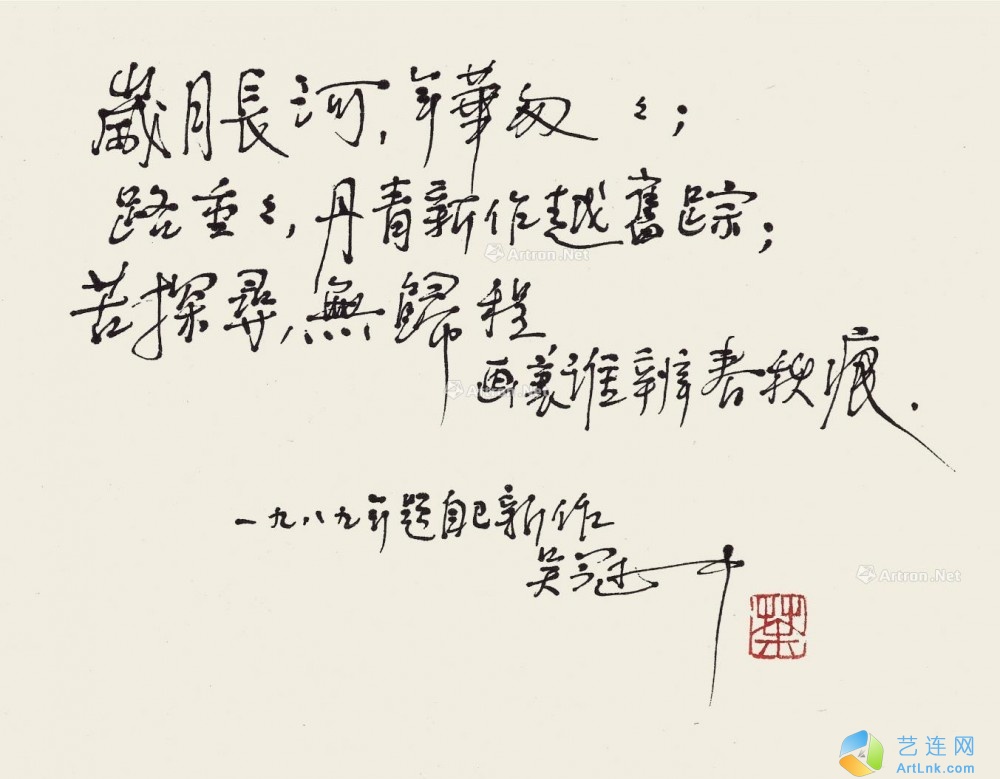 歲月長河,年華匆々;
路重々,丹青新作越舊踪;
苦探尋,無歸程
画裏谁辨春秋痕.
一九八九年题自己新作
吴冠中
荼
Artron.Net
Artron.Net
Artron.Net
艺连网
ArtLnk.com